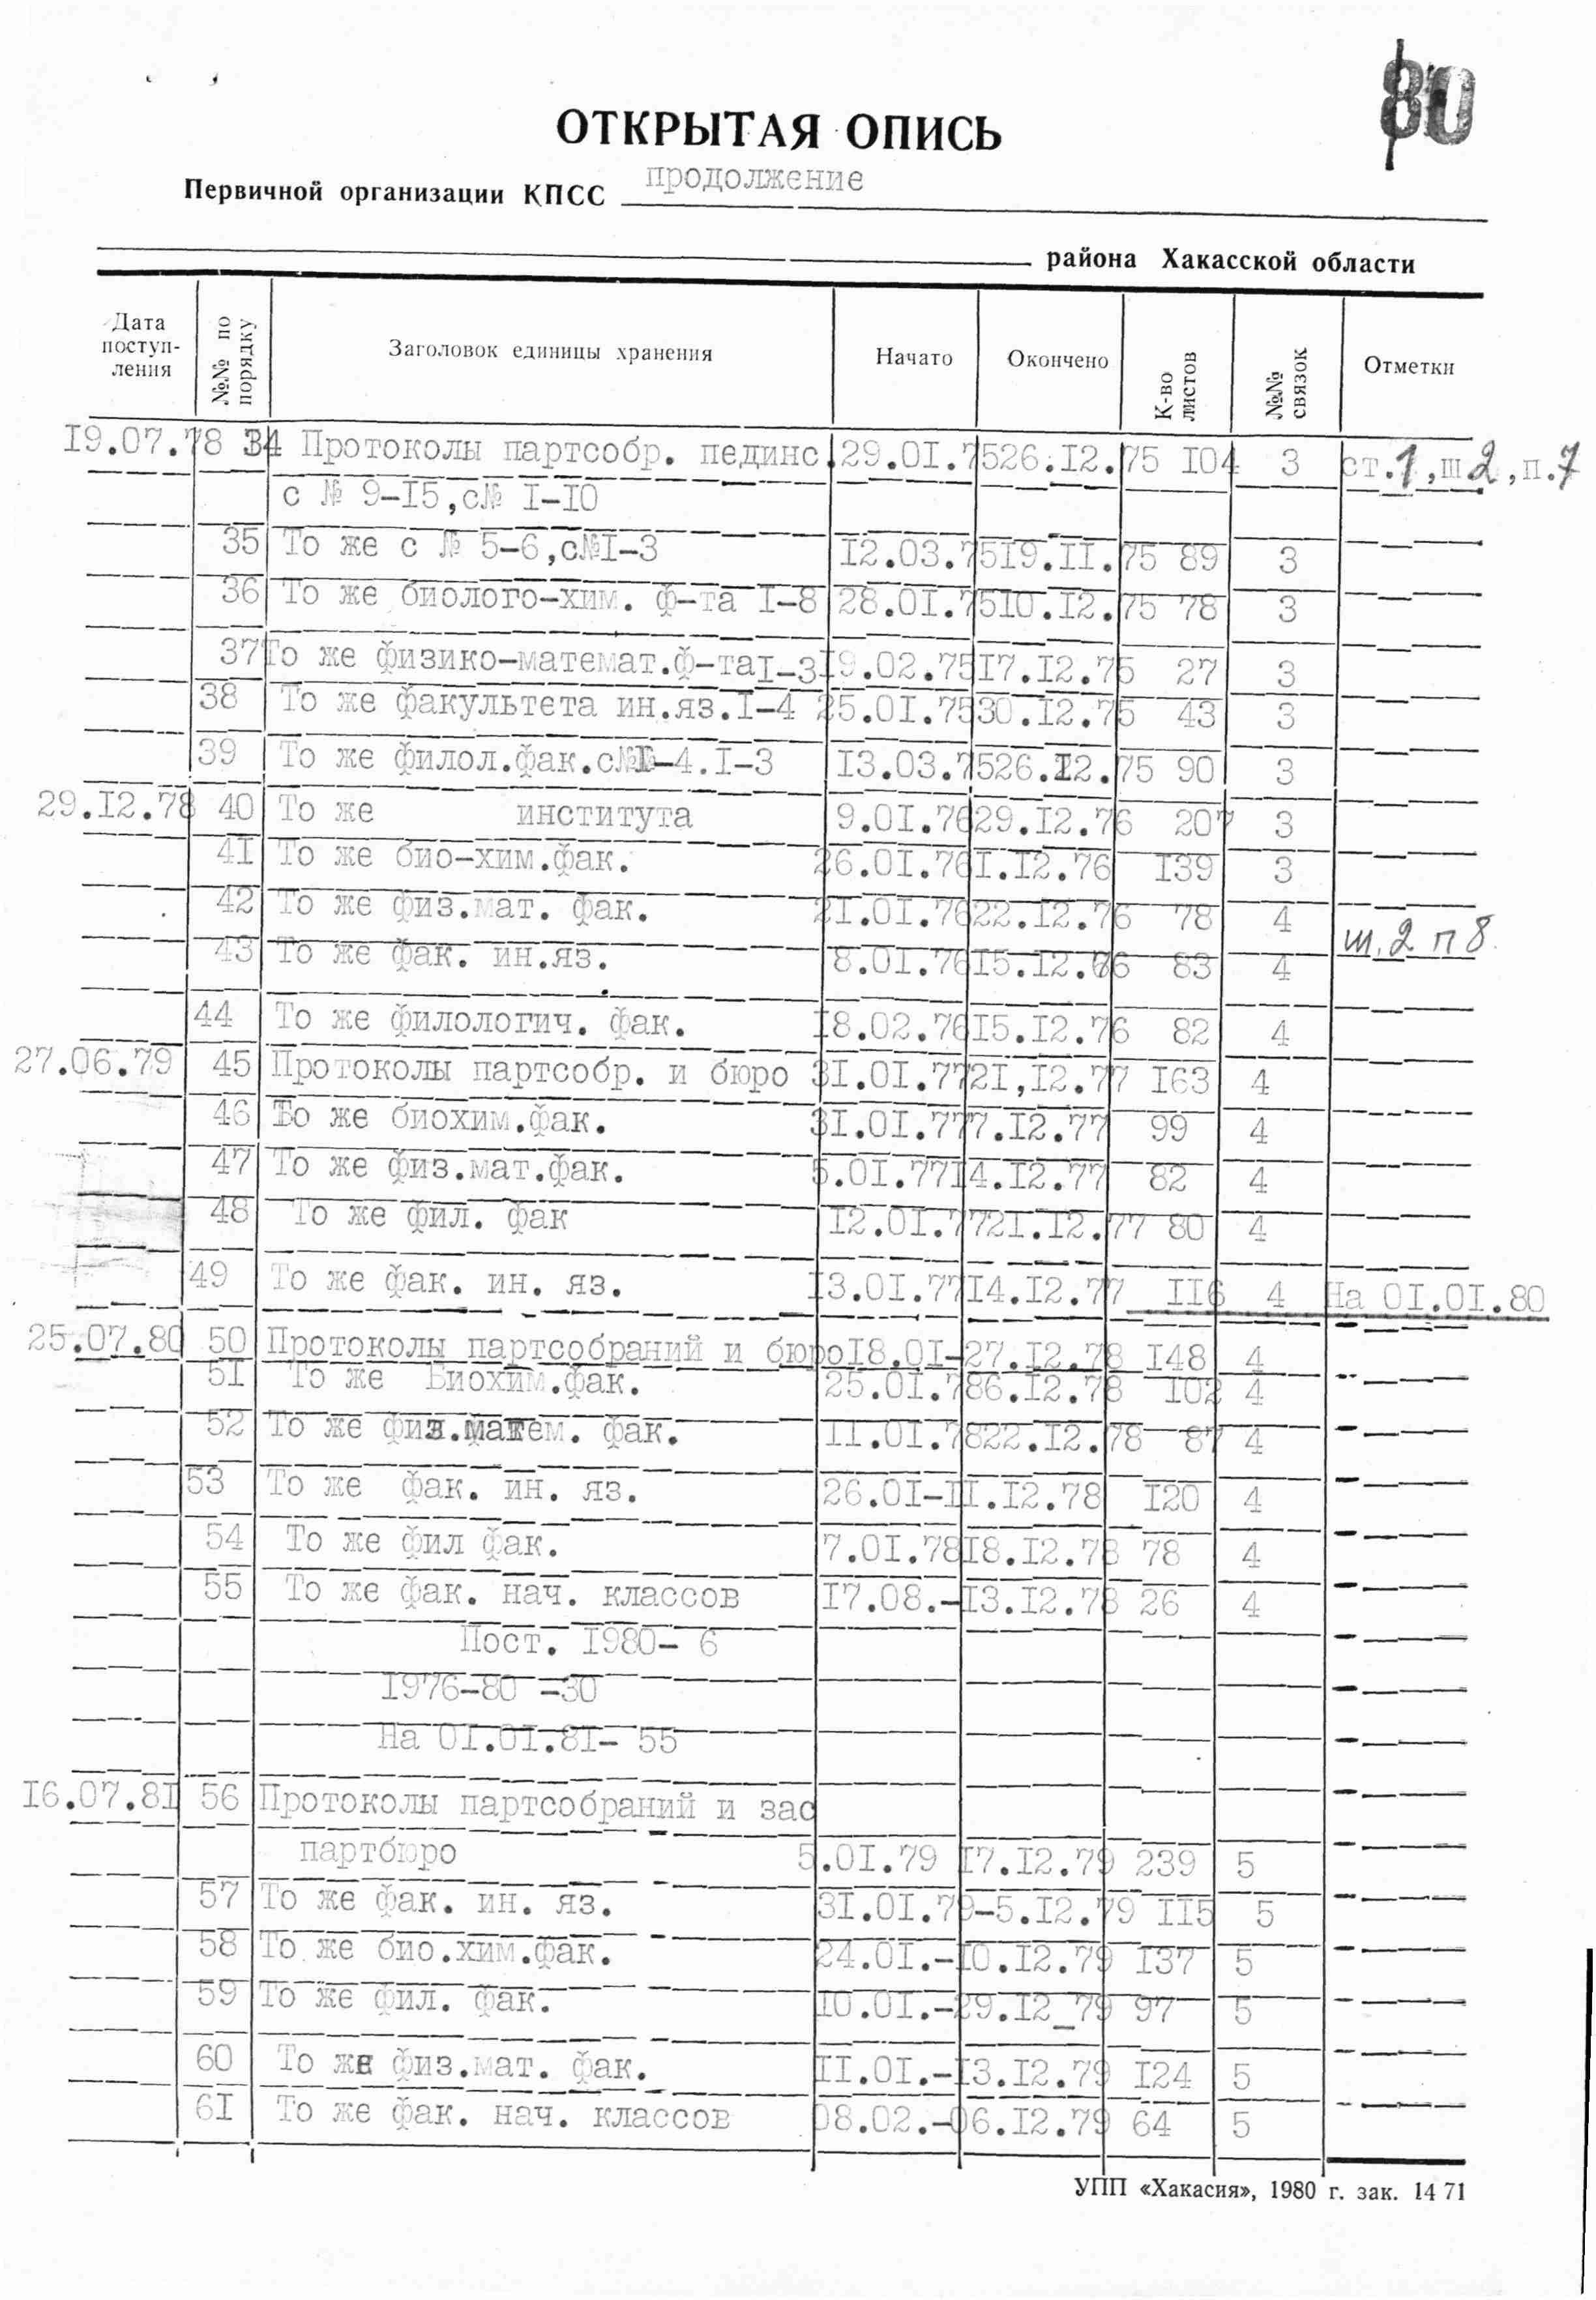 80
ОТКРЫТАЯ ОПИСЬ
Первичной организации КПСС продолжение
района Хакасской области
Дата поступ-ления №№ по порядку Заголовок единицы хранения Начато Окончено К-во листов №№ связок Отметки
19.07.78 34 Протоколы партсобр. пединс. 29.01.75 26.12.75 104 3 ст.1,ш2,п.7
с № 9-15,с№ 1-10
35 То же с № 5-6,с№1-3 12.03.75 19.11.75 89 3
36 То же биолого-хим. ф-та 1-8 28.01.75 10.12.75 78 3
37 То же физико-математ.ф-та1-3 19.02.75 17.12.75 27 3
38 То же факультета ин.яз.1-4 25.01.75 30.12.75 43 3
39 То же филол.фак.с№1-4.1-3 13.03.75 26.12.75 90 3
29.12.78 40 То же института 9.01.76 29.12.76 207 3
41 То же био-хим.фак. 26.01.76 1.12.76 139 3
42 То же физ.мат. фак. 21.01.76 22.12.76 78 4
43 То же фак. ин.яз. 8.01.76 15.12.76 83 4 ш.2 п 8.
44 То же филологич. фак. 18.02.76 15.12.76 82 4
27.06.79 45 Протоколы партсобр. и бюро 31.01.77 21,12.77 163 4
46 То же биохим.фак. 31.01.77 7.12.77 99 4
47 То же физ.мат.фак. 5.01.77 14.12.77 82 4
48 То же фил. фак 12.01.77 21.12.77 80 4
49 То же фак. ин. яз. 13.01.77 14.12.77 116 4 На 01.01.80
25.07.80 50 Протоколы партсобраний и бюро 18.01-27.12.78 148 4
51 То же Биохим.фак. 25.01.78 6.12.78 102 4
52 То же физ.матем. фак. 11.01.78 22.12.78 87 4
53 То же фак. ин. яз. 26.01-11.12.78 120 4
54 То же фил фак. 7.01.78 18.12.78 78 4
55 То же фак. нач. классов 17.08.-13.12.78 26 4
Пост. 1980- 6
1976-80 -30
На 01.01.81- 55
16.07.81 56 Протоколы партсобраний и зас
партбюро 5.01.79 17.12.79 239 5
57 То же фак. ин. яз. 31.01.79-5.12.79 115 5
58 То же био.хим.фак. 24.01.-10.12.79 137 5
59 То же фил. фак. 10.01.-29.12_79 97 5
60 То же физ.мат. фак. 11.01.-13.12.79 124 5
61 То же фак. нач. классов 08.02.-06.12.79 64 5
УПП «Хакасия», 1980 г. зак. 1471